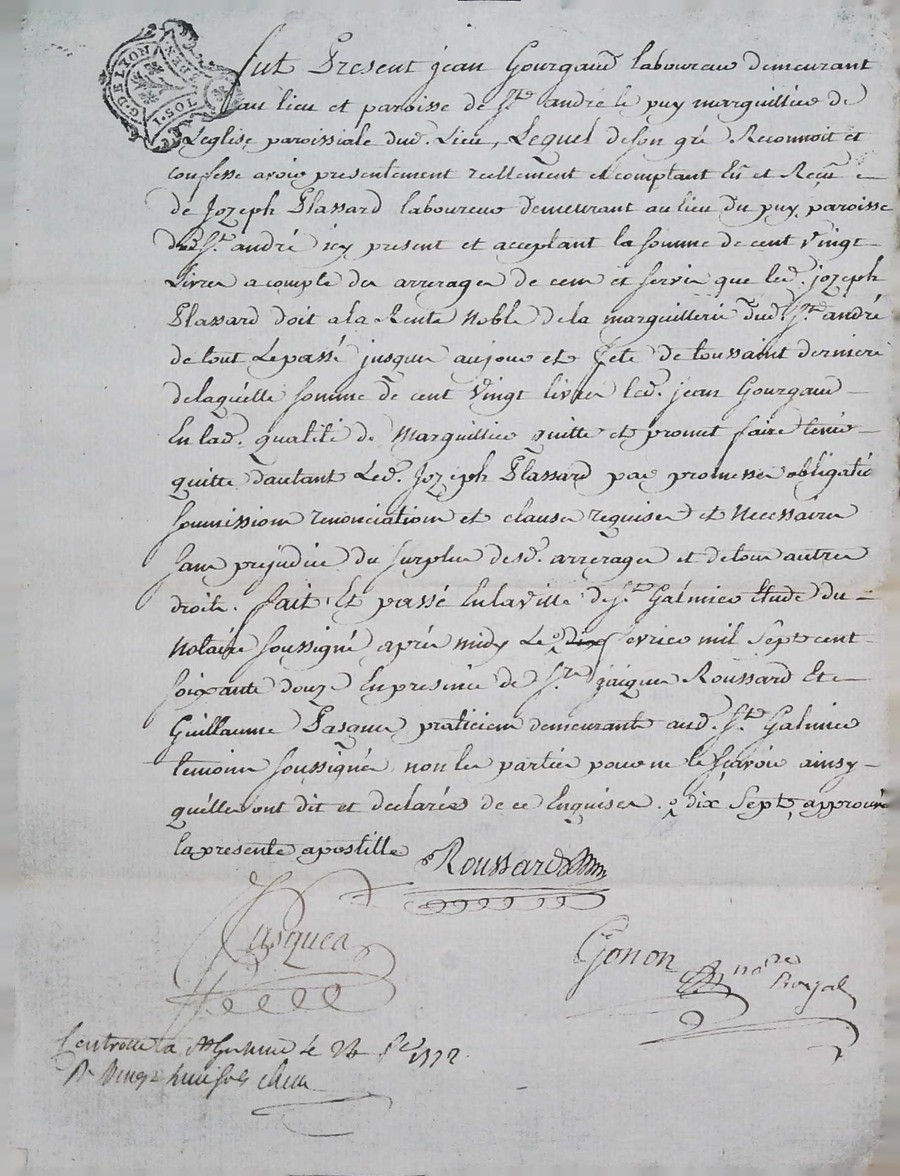 G. DE LYON
1. SOL
fut Present jean Gourgaud laboureur demeurant
au lieu et paroisse de St. andré le puy marguillier de
L'eglise paroissiale dud. Lieu, Lequel de son gré Reconnoit et
confesse avoir presentement reellement et comptant Eu et Reçu
de Jozeph Plassard laboureur demeurant au lieu du puy, paroisse
dud St. andré icy present et acceptant la somme de cent vingt
Livres a compte des arrerages de cens et servis que led. jozeph
Plassard doit a la Rente Noble de la marguillerie dud. St. andré
de tout Le passé jusques aujour et fete de toussaint derniere
de laquelle somme de cent vingt livres led. jean Gourgaud
En lad. qualité de Marguillier quitte et promet faire tenir
quitte d'autant Led. Jozeph Plassard par promesses obligatio
soumissions renonciations et clauses requises et Necessaires
sans prejudice du surplus desd. arrerages et de tous autres
droits. fait Et passé En la ville de St. Galmier Etude du
Notaire soussigné après midy Le dix fevrier mil sept cent
soixante douze En presence de Sr. jaques Roussard Et
Guillaume Pasques praticiens demeurants aud. St. Galmier
temoins soussignés non les parties pour ne le sçavoir ainsy
quelles ont dit et declarés de ce Enquises. dix sept, approuvé
la presente apostille Roussard
Pasques
Gonon nore Royal
Controllé a St Galmier le 24 1772
R vingt huit sols